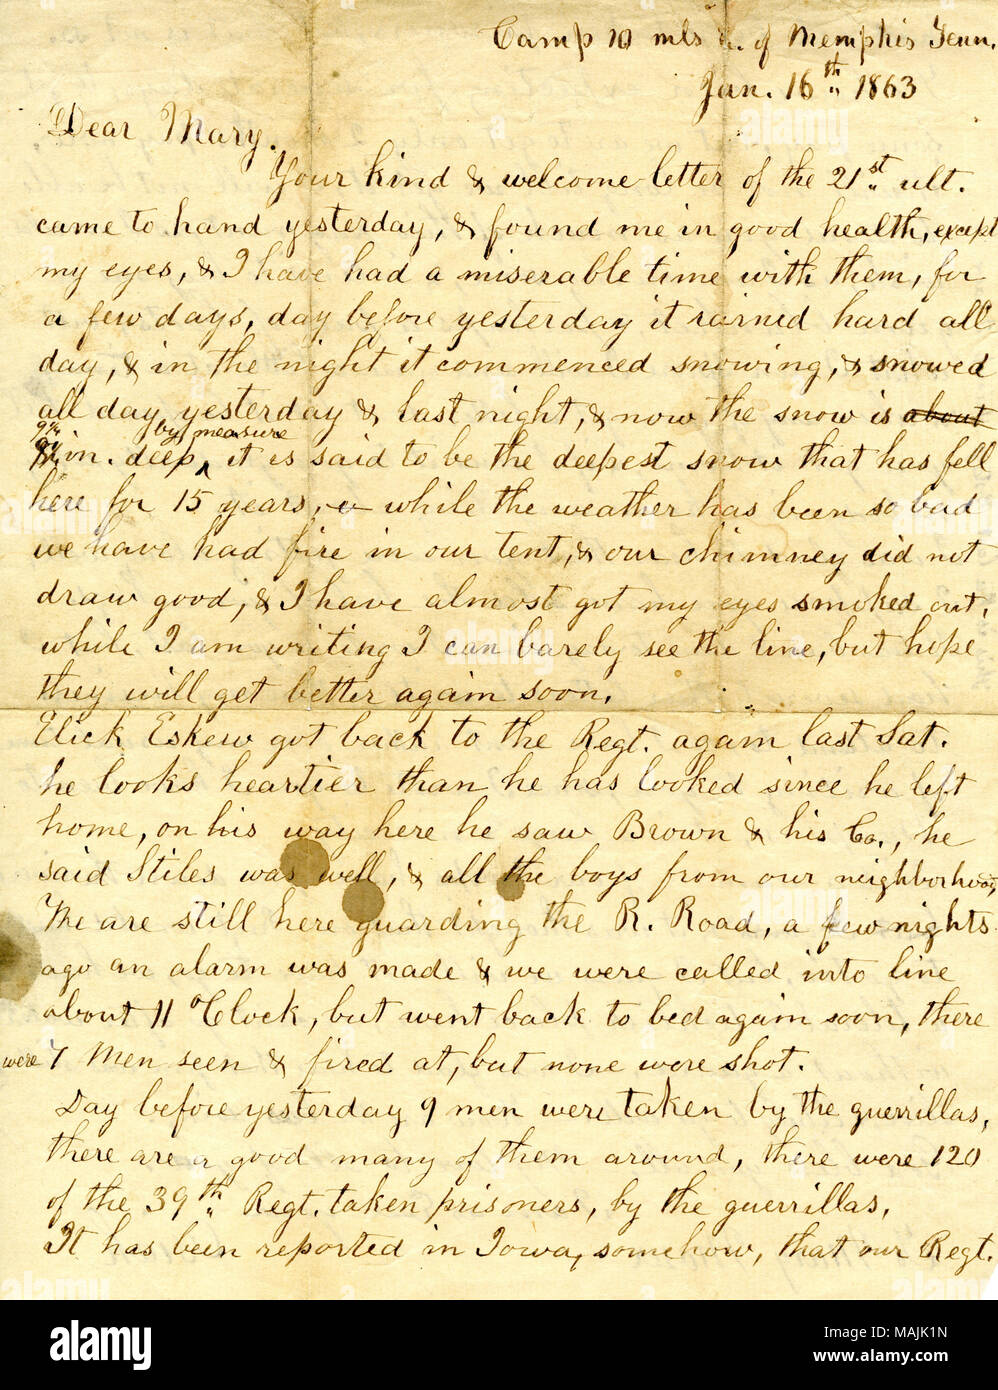 Camp 10 mls . of Memphis Tenn.
Jan. 16th 1863
Dear Mary.
Your kind & welcome letter of the 21st ult.
came to hand yesterday, & found me in good health, except
my eyes, & I have had a miserable time with them, for
a few days, day before yesterday it rained hard all
day, & in the night it commenced snowing, & snowed
all day yesterday & last night, & now the snow is about
9¼ in. deep by measure, it is said to be the deepest snow that has fell
here for 15 years, while the weather has been so bad
we have had fire in our tent, & our chimney did not
draw good, & I have almost got my eyes smoked out,
while I am writing I can barely see the line, but hope
they will get better again soon.
Elick Eskew got back to the Regt. again last Sat.
he looks heartier than he has looked since he left
home, on his way here he saw Brown & his Co., he
said Stiles was well, & all the boys from our neighborhood,
We are still here guarding the R. Road, a few nights
ago an alarm was made & we were called into line
about 11 O'Clock, but went back to bed again soon, there
were 7 Men seen & fired at, but none were shot.
Day before yesterday 9 men were taken by the guerrillas,
there are a good many of them around, there were 120
of the 39th Regt. taken prisoners, by the guerrillas,
It has been reported in Iowa, somehow, that our Regt.
alamy
Image ID: MAJK1N
www.alamy.com